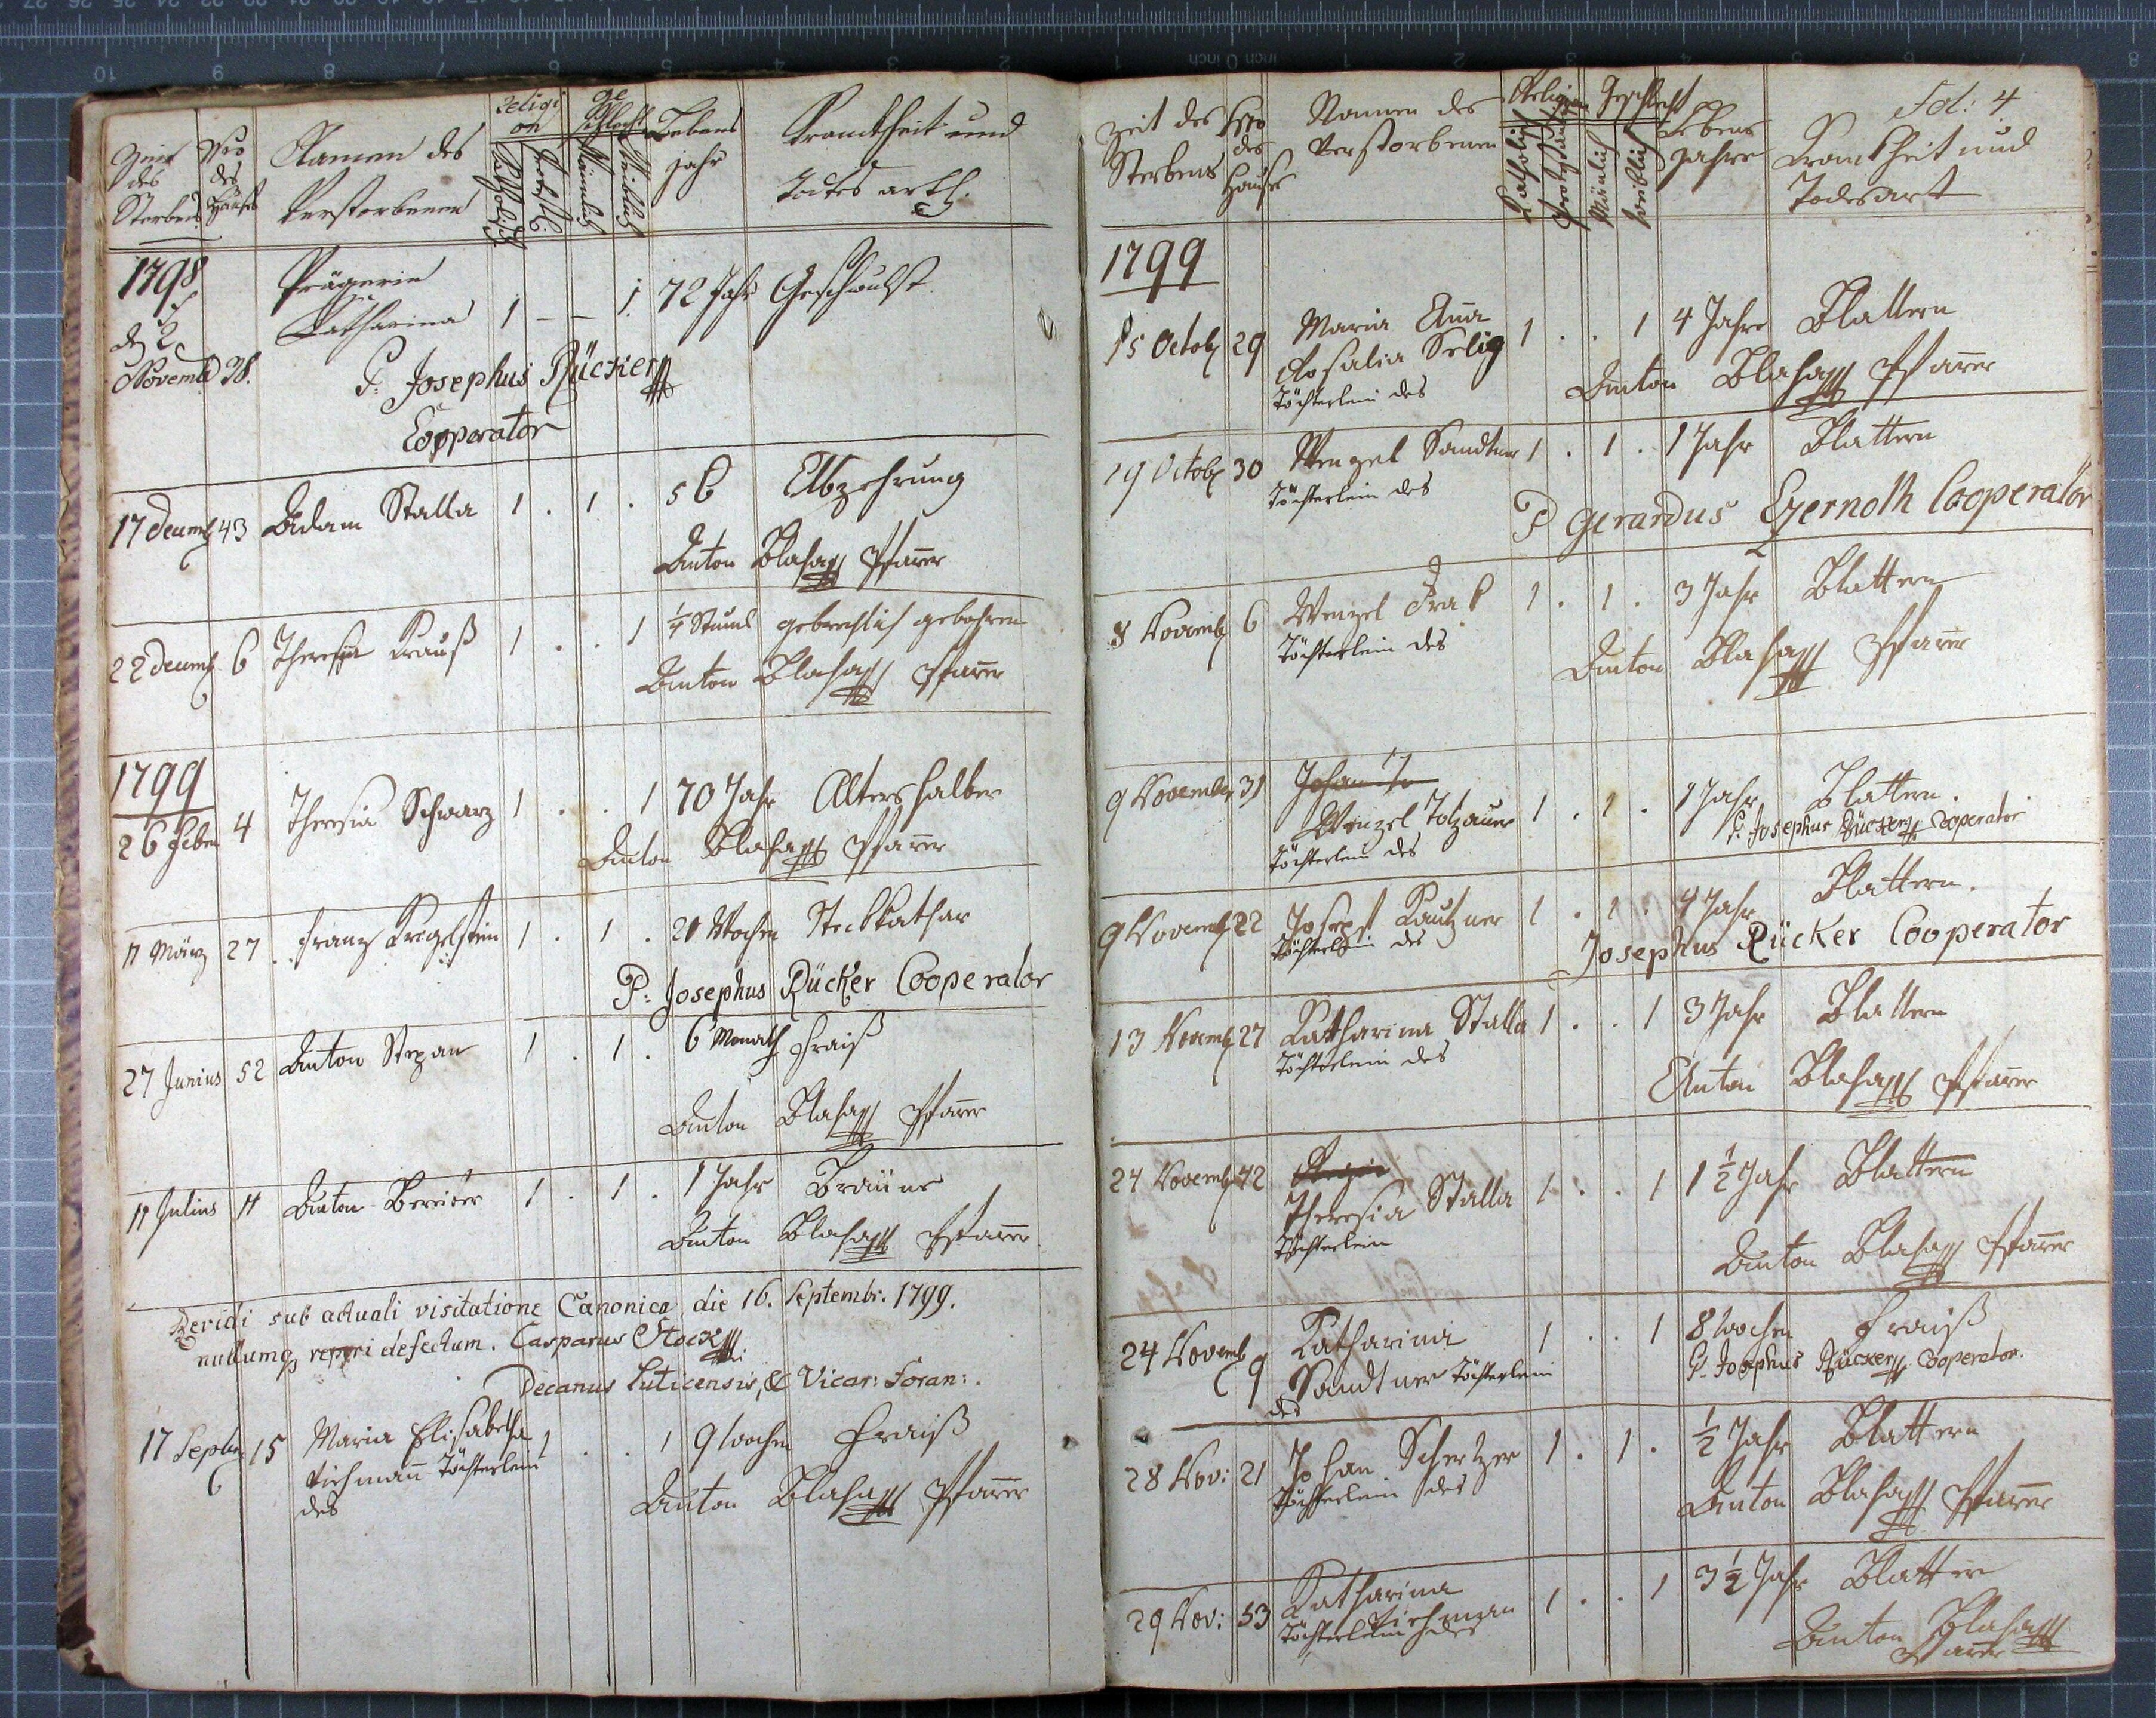 Zeit des Sterbens
Nro des Hauses
Namen des Verstorbenen
Religion
Katholisch
Geschlecht
Männlich
Weiblich
Lebens jahr
Krankheit und Todes art
1798
2 Novemb 38.
Katharina 1 – – 1. 72 Jahr Geschwulst.
P. Josephus Rücker
Cooperator
17 Decemb 43 Adam Stalla 1 . 1 . 56 Abzehrung
Anton Blaha Pfarrer
22 Decemb 6 Theresia Krauß 1 . . 1 1/4 Stund gebrechlich gebohren
Anton Blaha Pfarrer
1799
26 Feber 4 Theresia Schwarz 1 . . 1 70 Jahr Altershalber
Anton Blaha Pfarrer
11 März 27 Franz Krigelstein 1 . 1 . 21 Wochen Steckkathar
P: Josephus Rücker Cooperator
27 Junius 52 Anton Stepan 1 . 1 . 6 Monath Fraiß
Anton Blaha Pfarrer
11 Julius 11 Anton 1 . 1 . 1 Jahr Bräune
Anton Blaha Pfarrer
Revidi sub actuali visitatione Canonica die 16. Septembr. 1799.
nullumq reperi defectum. Casparus Stock
Decanus Luticensis, & Vicar: Foran:.
17 Septbr 15 Maria Elisabetha 1 . . 1 9 Wochen Fraiß
Viehmann Töchterlein
des
Anton Blaha Pfarrer
Fol: 4
Zeit des Sterbens
Nro des Hauses
Namen des Verstorbenen
Religion
Katholisch
Protestantisch
Geschlecht
Mänlich
Weiblich
Lebens Jahre
Krankheit und Todesart
1799
15 Octob 29 Maria Anna 1 . . 1 4 Jahre Blattern
Rosalia Selig
Töchterlein des
Anton Blaha Pfarrer
19 Octob 30 Wenzel Sandtner 1 . 1 . 1 Jahr Blattern
Töchterlein des
P Gerardus Czernoth Cooperator
8 Novemb 6 Wenzel 1 . 1 . 3 Jahr Blattern
Töchterlein des
Anton Blaha Pfarrer
9 November 31 Johann
Wenzel Tolzauer 1 . 1 . 1 Jahr Blattern.
P. Josephus Rücker Cooperator
Töchterlein des
9 Novemb 22 Joseph Kautzner 1 . 1 . 4 Jahr Blattern.
Töchterlein des
Josephus Rücker Cooperator
13 Novemb 27 Katharina Stalla 1 . . 1 3 Jahr Blattern
Töchterlein des
Anton Blaha Pfarrer
24 Novemb 42
Theresia Stalla 1 . . 1 1 1/2 Jahr Blattern
Töchterlein
Anton Blaha Pfarrer
24 Novemb 9 Katharina 1 . . 1 8 Wochen Fraiß
Sandtner Töchterlein
des
P. Josephus Rücker Cooperator.
28 Nov: 21 Johan Schertzer 1 . 1 . 1/2 Jahr Blattern
Töchterlein des
Anton Blaha Pfarrer
29 Nov: 53 Katharina 1 . . 1 3 1/2 Jahr Blattern
Viehman
Töchterlein des
Anton Blaha
Pfarrer